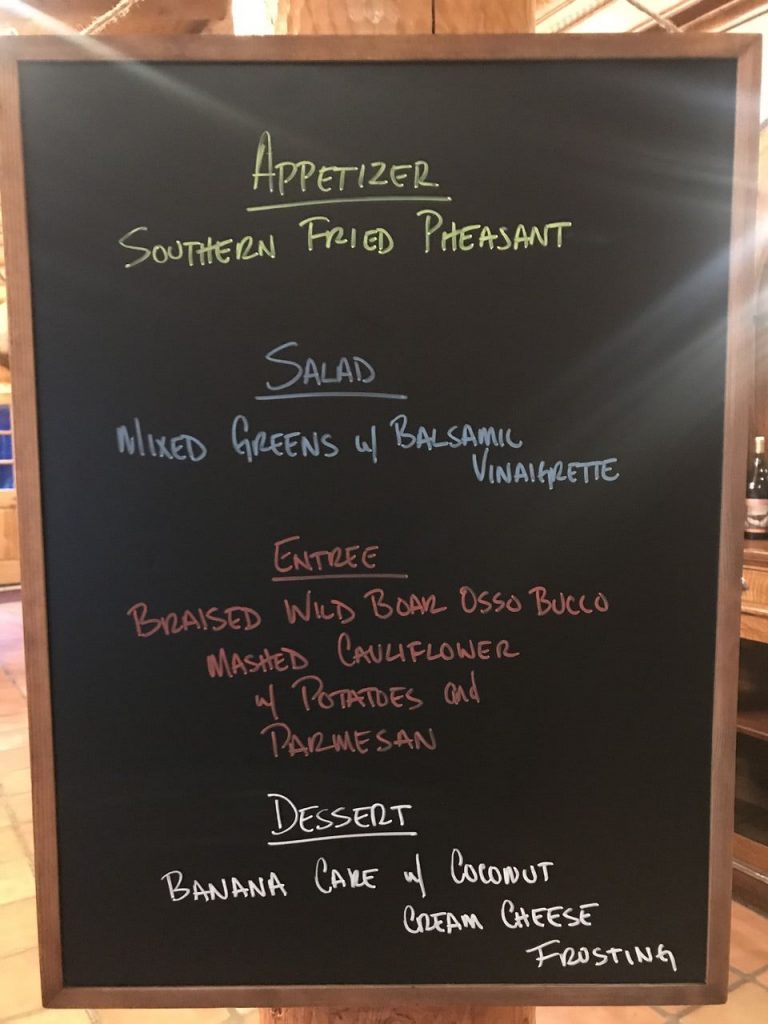 APPETIZER
SOUTHERN FRIED PHEASANT
SALAD
MIXED GREENS w/ BALSAMIC
VINAIGRETTE
ENTREE
BRAISED WILD BOAR OSSO BUCCO
MASHED CAULIFLOWER
w/ POTATOES and
PARMESAN
DESSERT
BANANA CAKE w/ COCONUT
CREAM CHEESE
FROSTING